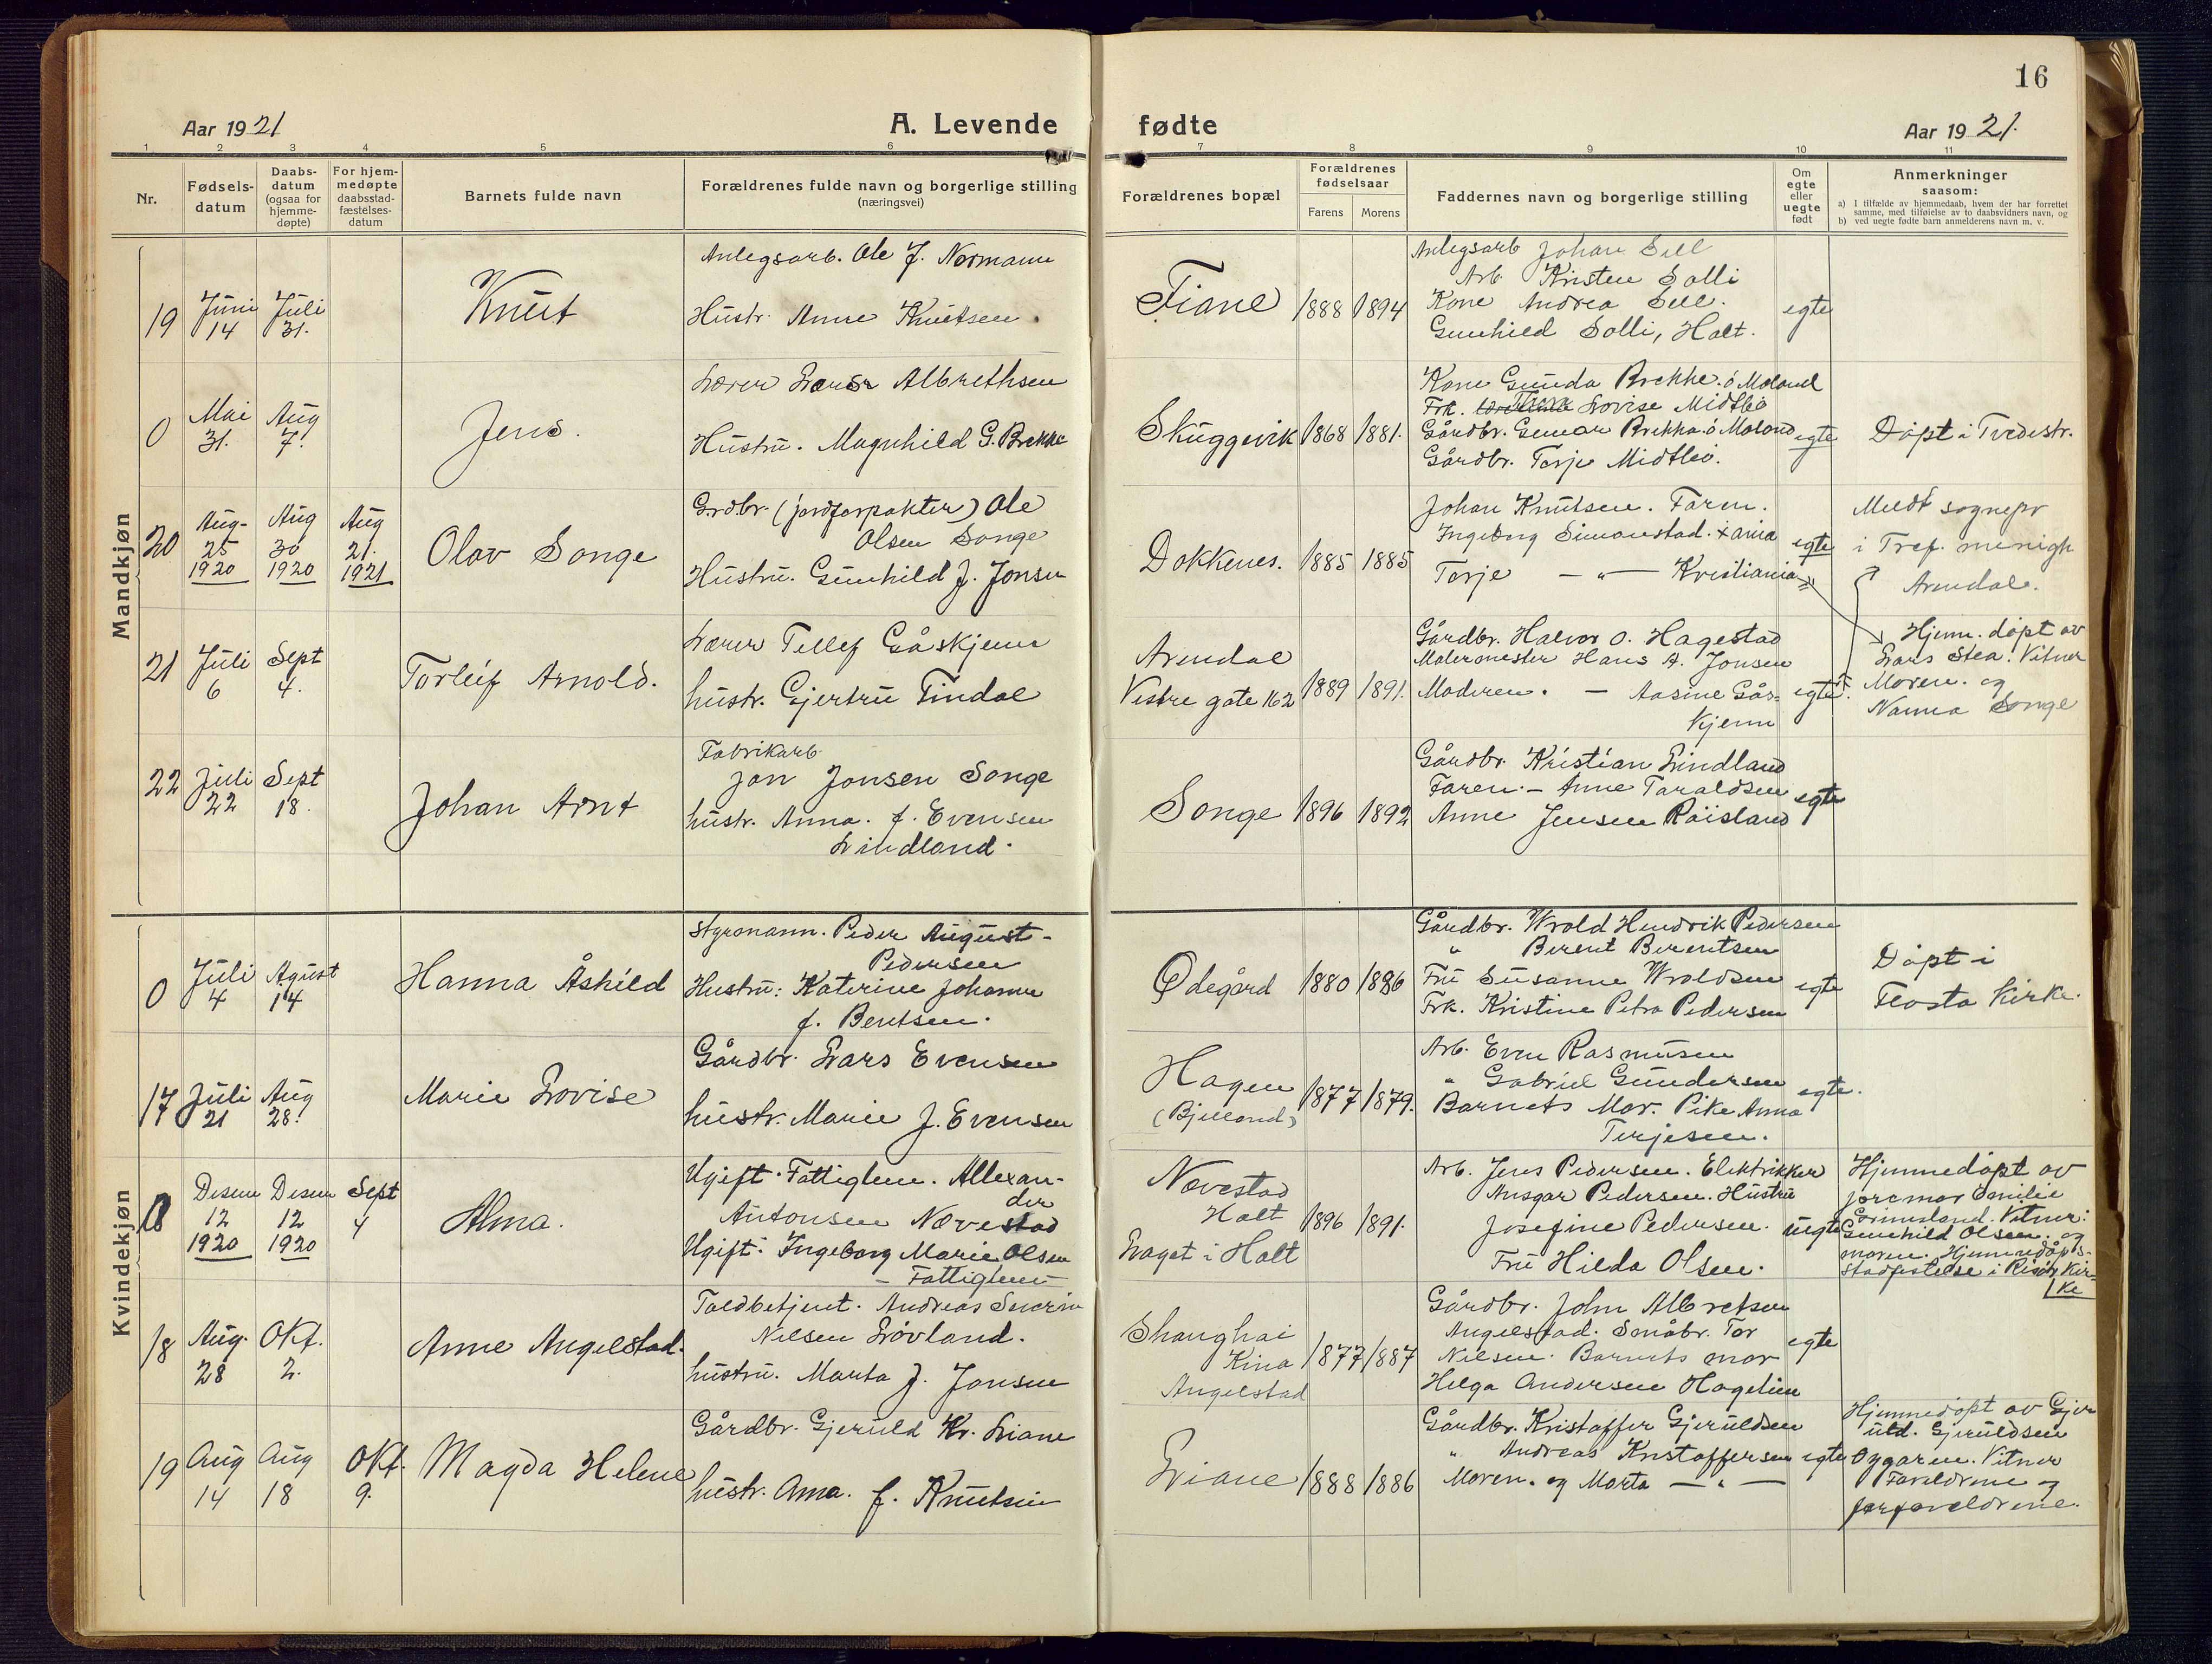 16
Aar 1921
A. Levende
fødte
Aar 1921.
1
2
3
4
5
6
7
8
9
10
11
Nr.
Fødsels-
datum
Daabs-
datum
(ogsaa for
hjemme-
døpte)
For hjem-
medøpte
daabsstad-
fæstelses-
datum
Barnets fulde navn
Forældrenes fulde navn og borgerlige stilling
(næringsvei)
Forældrenes bopæl
Forældrenes
fødselsaar
Farens
Morens
Faddernes navn og borgerlige stilling
Om
egte
eller
uegte
født
Anmerkninger
saasom:
a) I tilfælde av hjemmedaab, hvem der har forrettet
samme, med tilføielse av to daabsvidners navn, og
b) ved uegte fødte barn anmelderens navn m. v.
Mandkjøn
19
Juni
14
Juli
31.
Knut
Anlegsarb. Ole J. Normann
Hustr. Anne Knutsen.
Fiane
1888
1894
Anlegsarb Johan Sell
Arb. Kristen Solli
Kone Andrea Sell.
Gunhild Solli, Holt.
egte
0
Mai
31.
Aug
7.
Jens.
Lærer Lars Albrethsen
Hustru. Magnhild G. Brekke
Skuggevik
1868
1881.
Kone Gunda Brekke. ö Moland
Frk. Lovise Midtbö
Gårdbr. Gunnar Brekka. ö Moland
Gårdbr. Terje Midtbö.
egte
Döpt i Tvedestr.
20
Aug-
25
1920
Aug
30
1920
Aug
21.
1921
Olav Songe
Grdbr. (jordforpakter) Ole
Olsen Songe
Hustru. Gunhild J. Jonsen
Dokkenes.
1885
1885
Johan Knutsen. Faren.
Ingeborg Simonstad. Xania
Terje — „ — Kristiania
egte
Meldt sognepr
i Tref. menigh
Arendal.
21
Juli
6
Sept
4.
Torleif Arnold.
Lærer Tellef Gåskjenn
hustr. Gjertru Tindal
Arendal
Vestre gate 162
1889
1891.
Gårdbr. Halvor O. Hagestad
Malermester Hans A. Jonsen
Moderen. — Aasine Gås-
kjenn
egte
Hjem. döpt av
Lars Stea. Vitner
Moren. og
Nanna Songe
22
Juli
22
Sept
18.
Johan Arnt
Fabrikarb.
Jon Jonsen Songe
hustr. Anna. f. Evensen
Lindland.
Songe
1896
1892
Gårdbr. Kristian Lindland
Faren. — Anne Taraldsen
Anne Jensen Röisland
egte
Kvindekjøn
0
Juli
4
Agust
14
Hanna Åshild
Styrmann. Peder August-
Pedersen
Hustru: Katerine Johanne
f. Bentsen.
Ødegård
1880
1886
Gårdbr. Wrold Hendrik Pedersen
„ Berent Berentsen
Fru Susanne Wroldsen
Frk. Kristine Petra Pedersen
egte
Döpt i
Flosta Kirke.
17
Juli
21
Aug
28.
Marie Lovise
Gårdbr. Lars Evensen
hustr. Marie J. Evensen
Hagen
(Bjelland)
1877
1879.
Arb. Even Rasmusen
„ Gabriel Gundersen
Barnets Mor. Pike Anna
Terjesen.
egte.
0
Desem
12
1920
Desem
12
1920
Sept
4
Alma.
Ugift. Fattiglem. Allexan-
der
Antonsen Nævestad
Ugift. Ingeborg Marie Olsen
— Fattiglem —
Nævestad
Holt
Laget i Holt
1896
1891.
Arb. Jens Pedersen. Elektrikker
Ansgar Pedersen. Hustru
Josefine Pedersen.
Fru Hilda Olsen.
uegte
Hjemmedöpt av
jormor Emilie
Grimesland. Vitner:
Gunhild Olsen. og
moren. Hjemmedåps-
stadfestelse i Risör Kir-
ke
18
Aug.
28
Okt.
2.
Anne Angelstad.
Toldbetjent. Andreas Severin
Nilsen Lövland.
hustru. Marta J. Jonsen
Shanghai
Kina
Angelstad
1877
1887
Gårdbr. John Albretsen
Angelstad. Småbr. Tor
Nilsen. Barnets mor
Helga Andersen Hagelien
egte
19
Aug
14
Aug
18
Okt.
9.
Magda Helene
Gårdbr. Gjeruld Kr. Liane
hustr. Anna. f. Knutsen
Liane
1888
1886
Gårdbr. Kristoffer Gjeruldsen
„ Andreas Kristoffersen
Moren. og Marta — „ —
egte
Hjemmedöpt av Gjer
uld. Gjeruldsen
Oggaren. Vitner
Foreldrene og
forforeldrene.